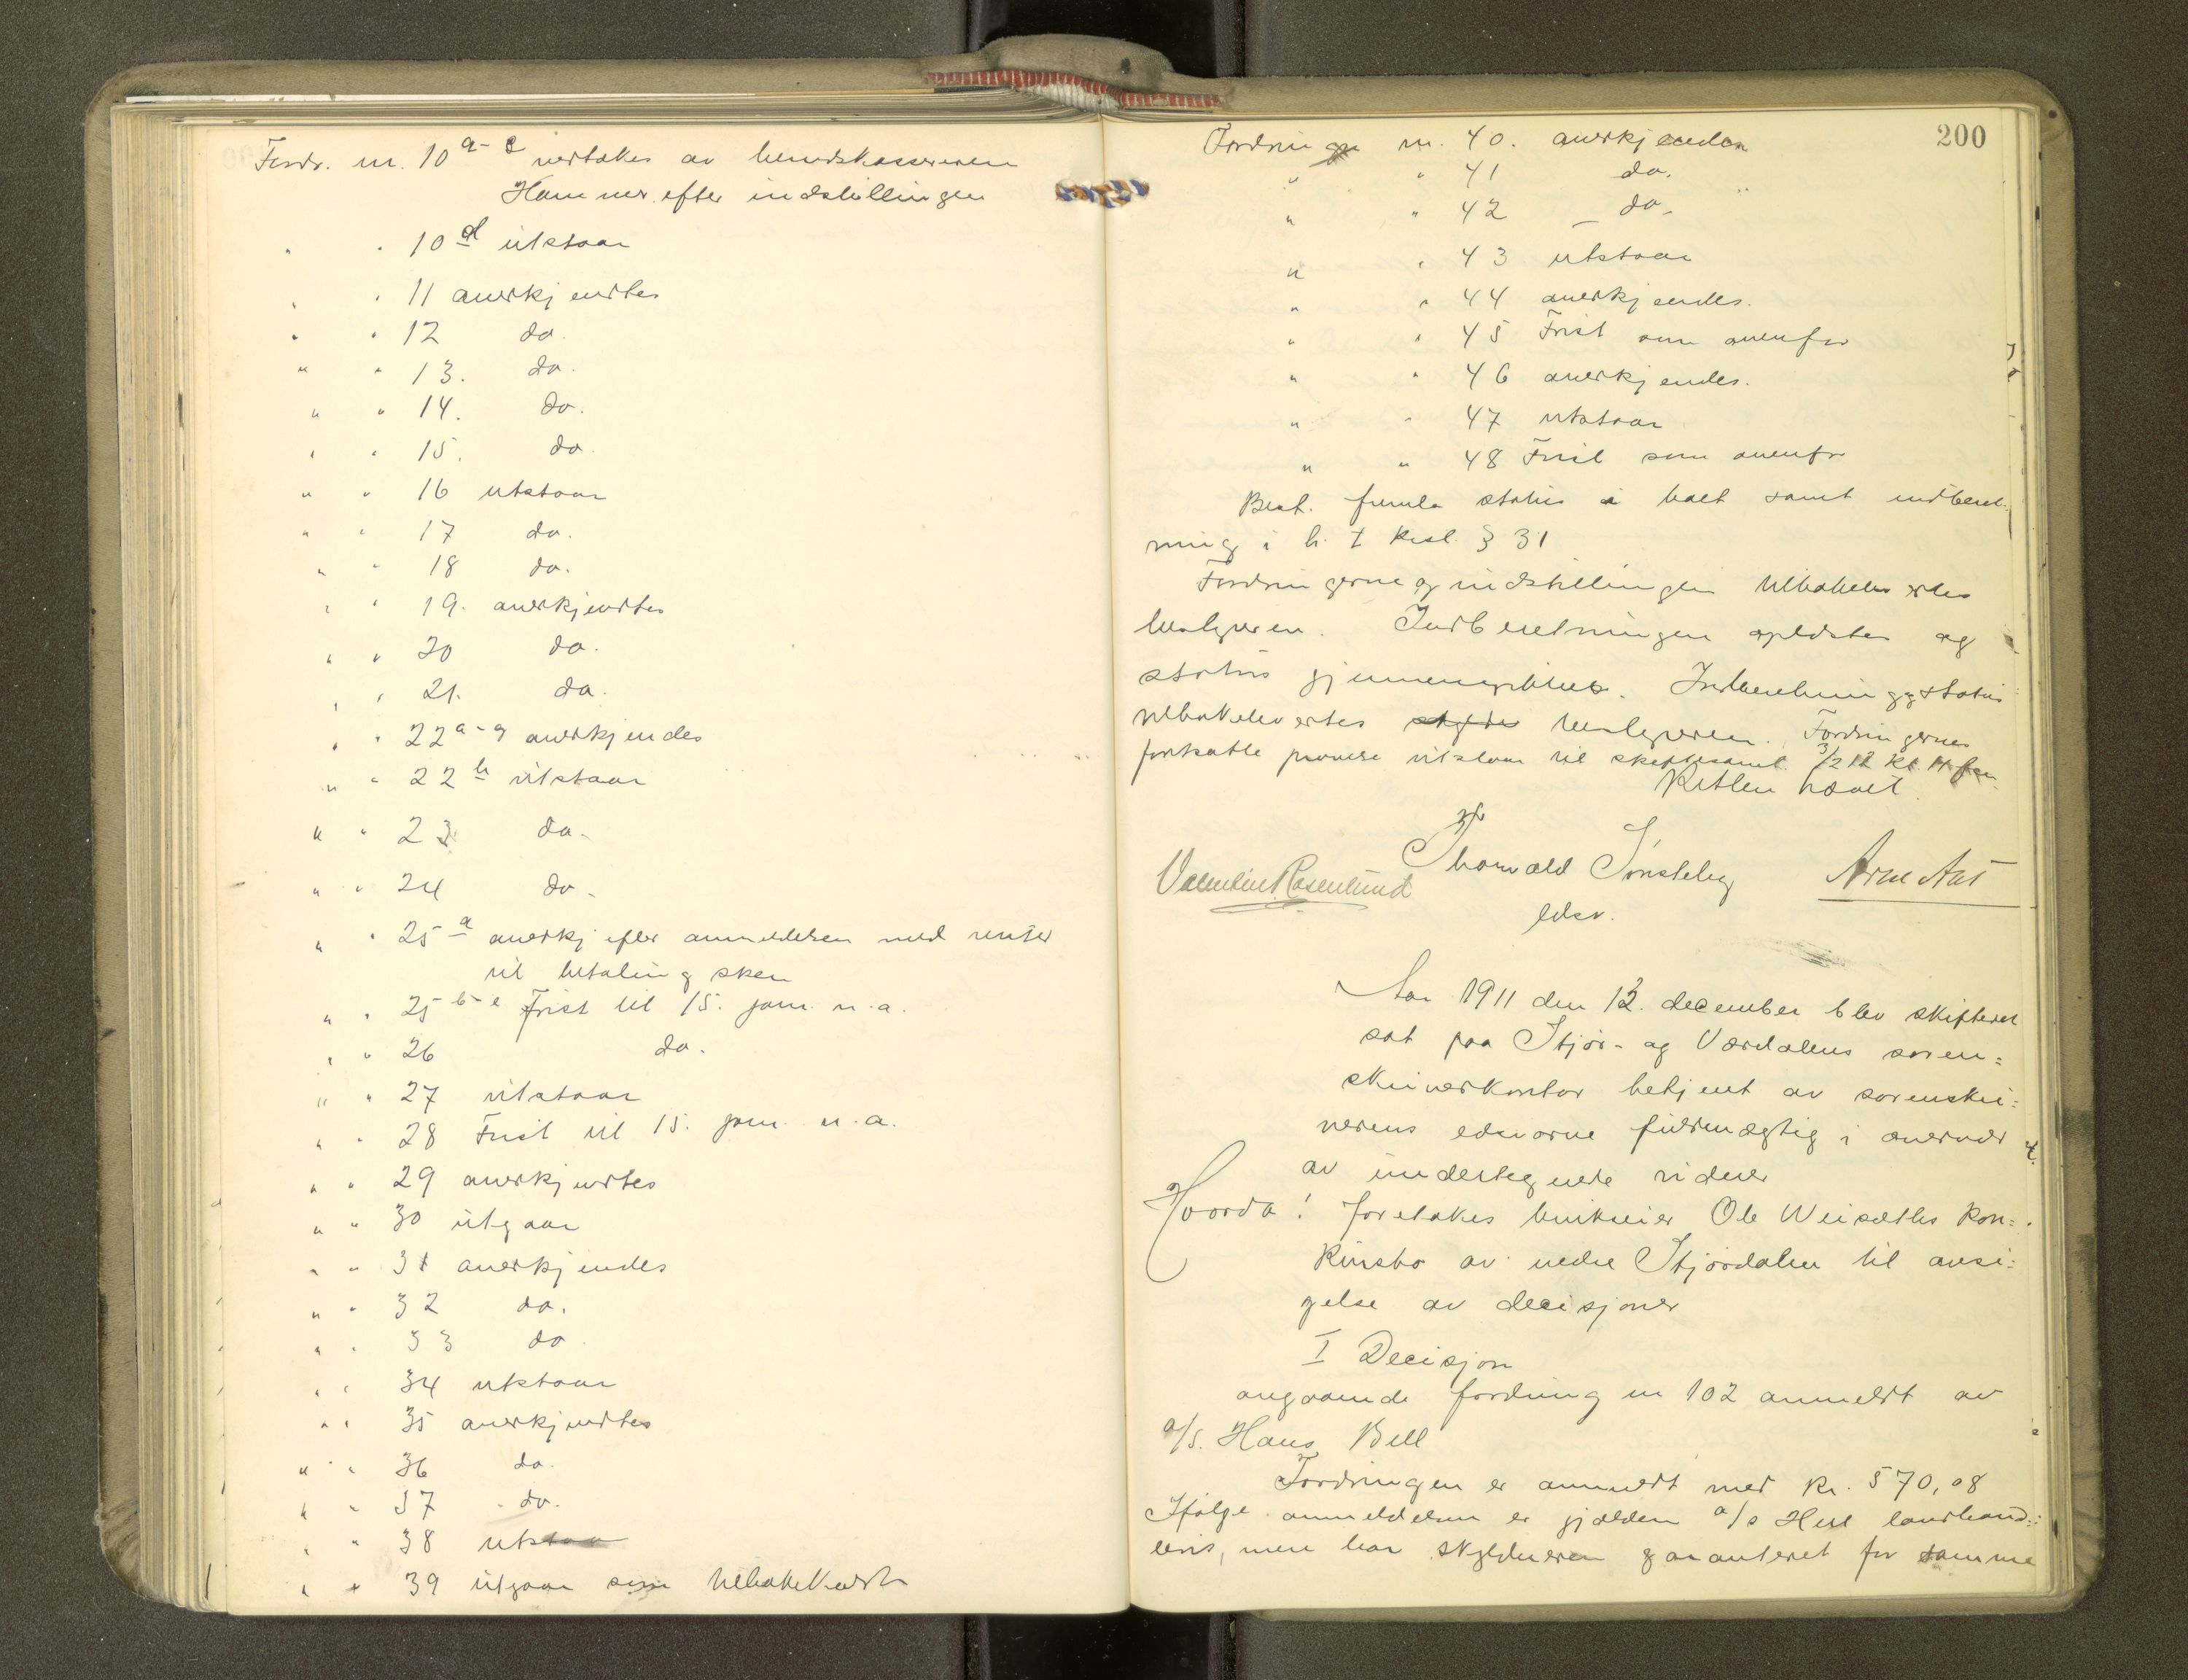 Fordr. nr. 10 a-c vedtakes av herredskassereren
Hammer efter indstillingen
" " 10 d utstaar
" " 11 anerkjendtes
" " 12 do.
" " 13. do.
" " 14. do.
" " 15. do.
" " 16 utstaar
" " 17 do.
" " 18 do.
" " 19. anerkjendtes
" " 20 do.
" " 21. do.
" " 22 a-g anerkjendes
" " 22 h utstaar
" " 23 do.
" " 24 do.
" " 25 a anerkj efter anmeldelsen med renter
til betaling sker
" " 25 b-e Frist til 15. jan. n.a.
" " 26 do.
" " 27 utstaar
" " 28 Frist til 15. jan. n.a.
" " 29 anerkjendtes
" " 30 utgaar
" " 31 anerkjendes
" " 32 do.
" " 33 do
" " 34 utstaar
" " 35 anerkjendtes
" " 36 do.
" " 37 do.
" " 38 utstaar
" " 39 utgaar som tilbakekaldt
200
Fordringen nr. 40. anerkjendes
" " 41 do.
" " 42 do.
" " 43 utstaar
" " 44 anerkjendes.
" " 45 Frist som ovenfor
" " 46 anerkjendes.
" " 47 utstaar
" " 48 Frist som ovenfor
Best. fremla status i boet samt indberet-
ning i h. t. kosl. § 31
Fordringerne og indstillingen tilbakelevertes
bestyreren. Indberetningen oplæstes og
status gjennemgikkes. Indberetning og status
tilbakelevertes bestyreren. Fordringernes
fortsatte prøvelse utstaar til skiftesaml. 3/2 12 kl. 11 fm.
Retten hævet
Thorvald Tønsteby
edsv.
Valentin Rosenlund
Arne Aas
Aar 1911 den 12. december blev skifteret
sat paa Stjør- og Værdalens soren=
skriverkontor betjent av sorenskri=
verens edsvorne fuldmægtig i overvær
av undertegnede vidner
Hvorda! foretakes brukseier Ole Weisæths kon=
kursbo av nedre Stjørdalen til avsi=
gelse av decisjoner
I Decisjon
angaaende fordring nr 102 anmeldt av
a/s. Hans Bell
Fordringen er anmeldt med kr. 570,08
Ifølge anmeldelsen er gjælden a/s Hell landhand=
leris, men har skyldneren garanteret for samme